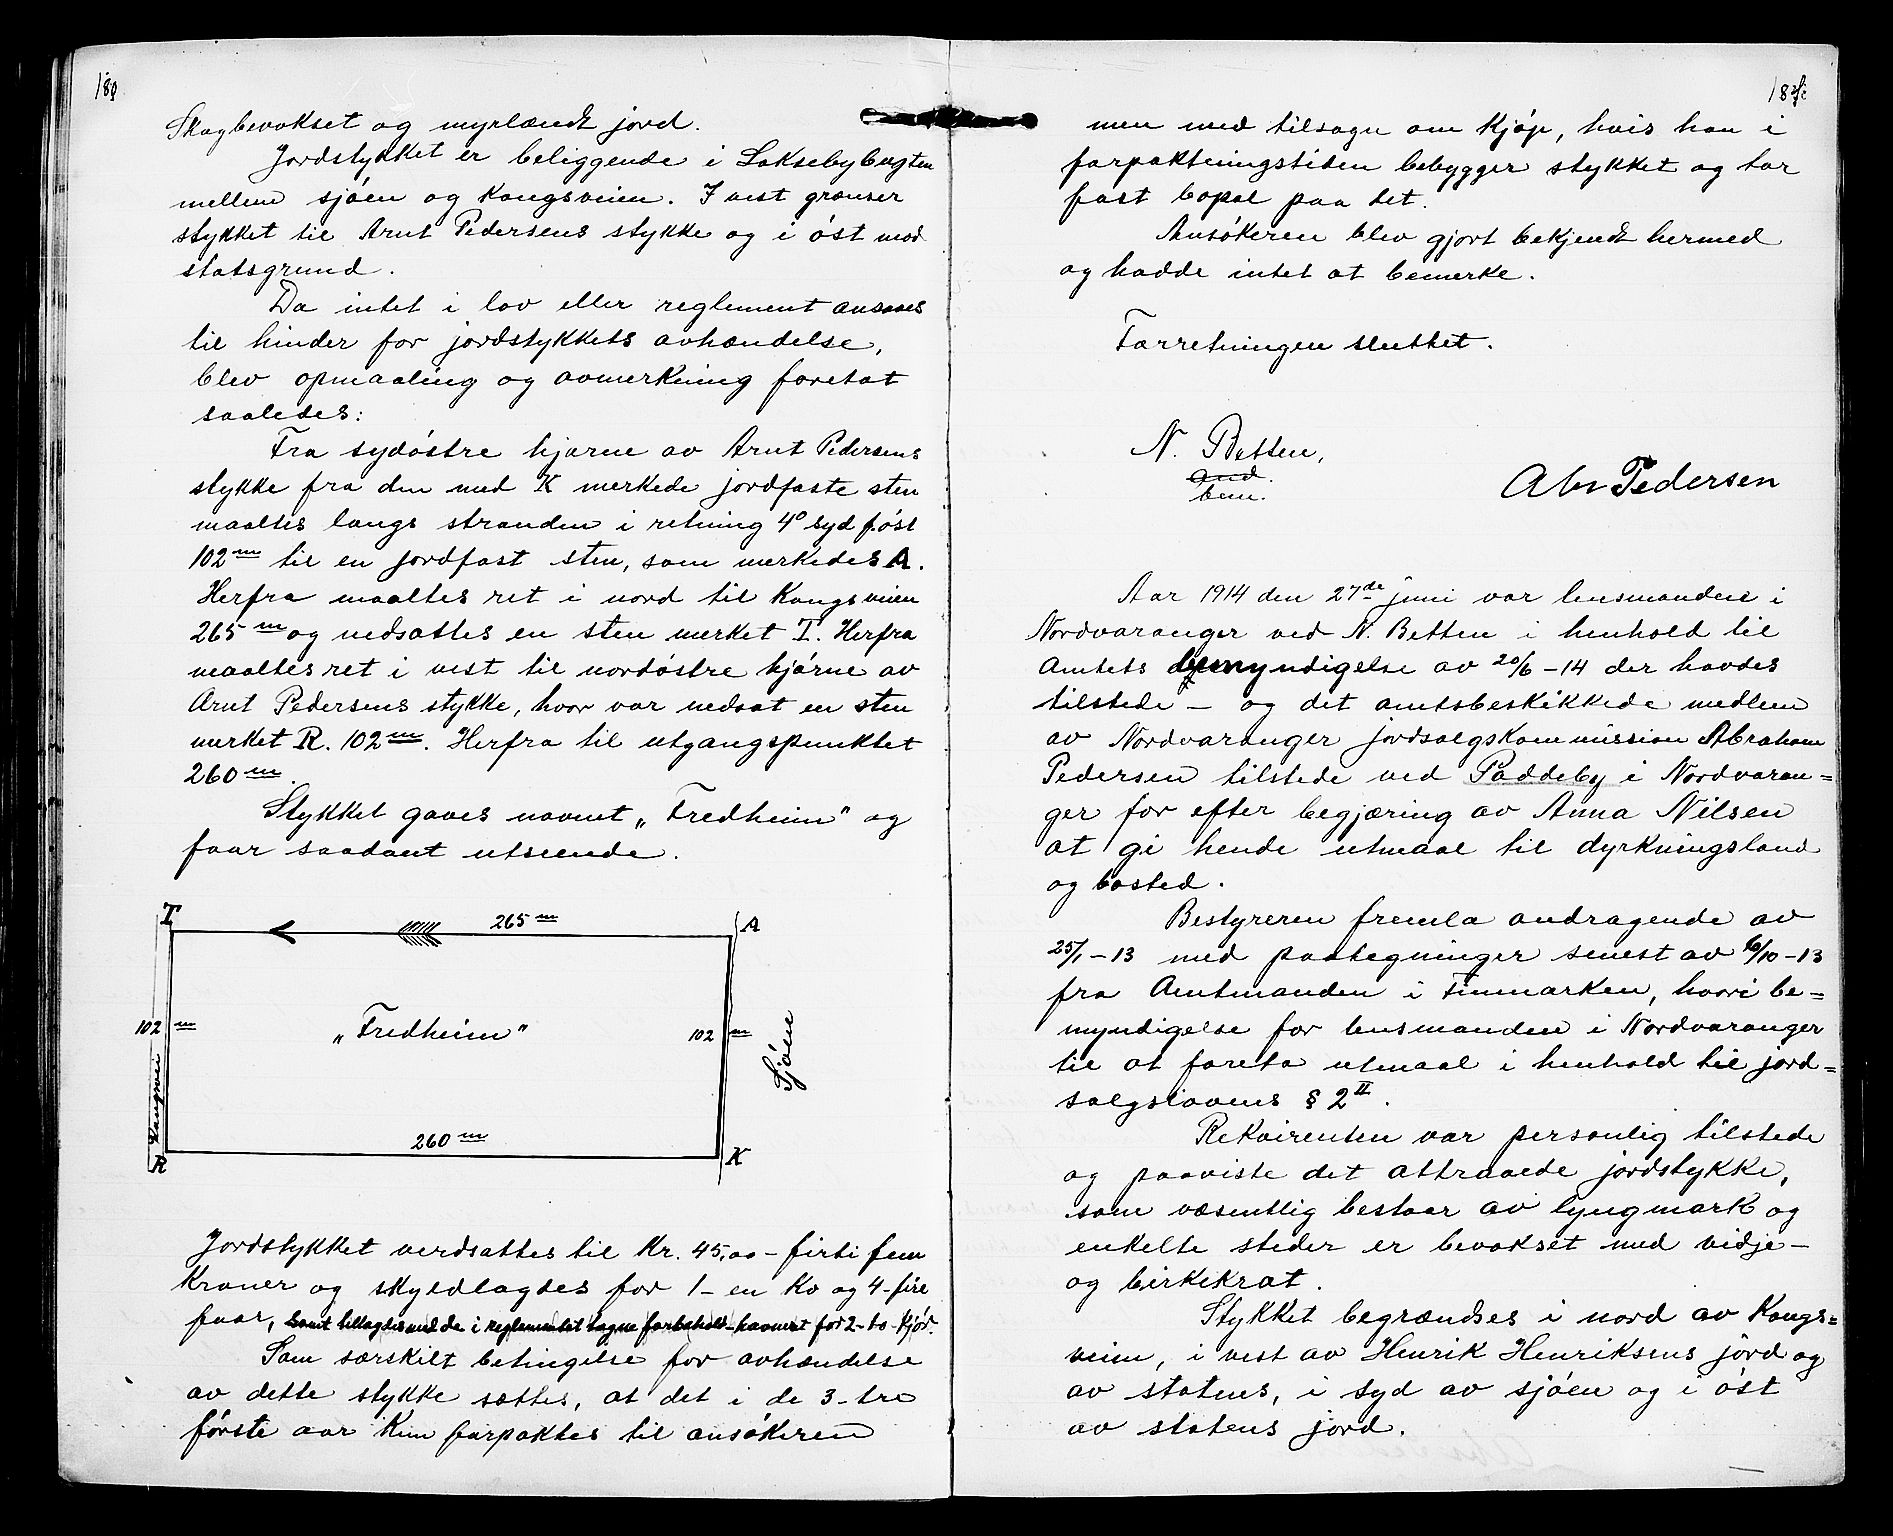 Skogbevokset og myrlændt jord.
Jordstykket er beliggende i Laksebybugten
mellem sjøen og Kongsveien. I vest grænser
stykket til Arnt Pedersens stykke og i øst mod
statsgrund.
Da intet i lov eller reglement ansaaes
til hinder for jordstykkets avhændelse,
blev opmaaling og avmerkning foretat
saaledes:
Fra sydøstre hjørne av Arnt Pedersens
stykke fra den med K merkede jordfaste sten
maaltes langs stranden i retning 4° syd f. øst
102 m til en jordfast sten, som merkedes A.
Herfra maaltes ret i nord til Kongsveien
265 m og nedsattes en sten merket T. Herfra
maaltes ret i vest til nordøstre hjørne av
Arnt Pedersens stykke, hvor var nedsat en sten
merket R. 102 m. Herfra til utgangspunktet
260 m.
Stykket gaves navnet „Fredheim" og
faar saadant utseende.
T 265 m A
102 m „Fredheim" 102 m
Sjøen
Kongsvei
260 m
R K
Jordstykket verdsattes til Kr. 45,00 – firti fem
Kroner og skyldlagdes for 1 – en Ko og 4 – fire
faar, samt tillagdes med de i reglementet tagne forbehold havnert for 2 – to – Kjør.
Som særskilt betingelse for avhændelse
av dette stykke sattes, at det i de 3 – tre
første aar Kun forpaktes til ansøkeren
men med tilsagn om Kjøp, hvis han i
forpaktningstiden bebygger stykket og tar
fast bopæl paa det.
Ansøkeren blev gjort bekjendt hermed
og hadde intet at bemerke.
Forretningen sluttet.
N. Betten,
bem.
Abr Pedersen
Aar 1914 den 27de juni var lensmanden i
Nordvaranger ved N. Betten i henhold til
Amtets bemyndigelse av 20/6 – 14 der havdes
tilstede – og det amtsbeskikkede medlem
av Nordvaranger jordsalgskommission Abraham
Pedersen tilstede ved Paddeby i Nordvaran=
ger for efter begjæring av Anna Nilsen
at gi hende utmaal til dyrkningsland
og bosted.
Bestyreren fremla andragende av
25/1 – 13 med paategninger senest av 6/10 – 13
fra Amtmanden i Finmarken, hvori be=
myndigelse for lensmanden i Nordvaranger
til at foreta utmaal i henhold til jord=
salgslovens § 2 II.
Rekvirenten var personlig tilstede
og paaviste det attraaede jordstykke,
som væsentlig bestaar av lyngmark og
enkelte steder er bevokset med vidje –
og birkekrat.
Stykket begrændses i nord av Kongs=
veien, i vest av Henrik Henriksens jord og
av statens, i syd av sjøen og i øst
av statens jord.